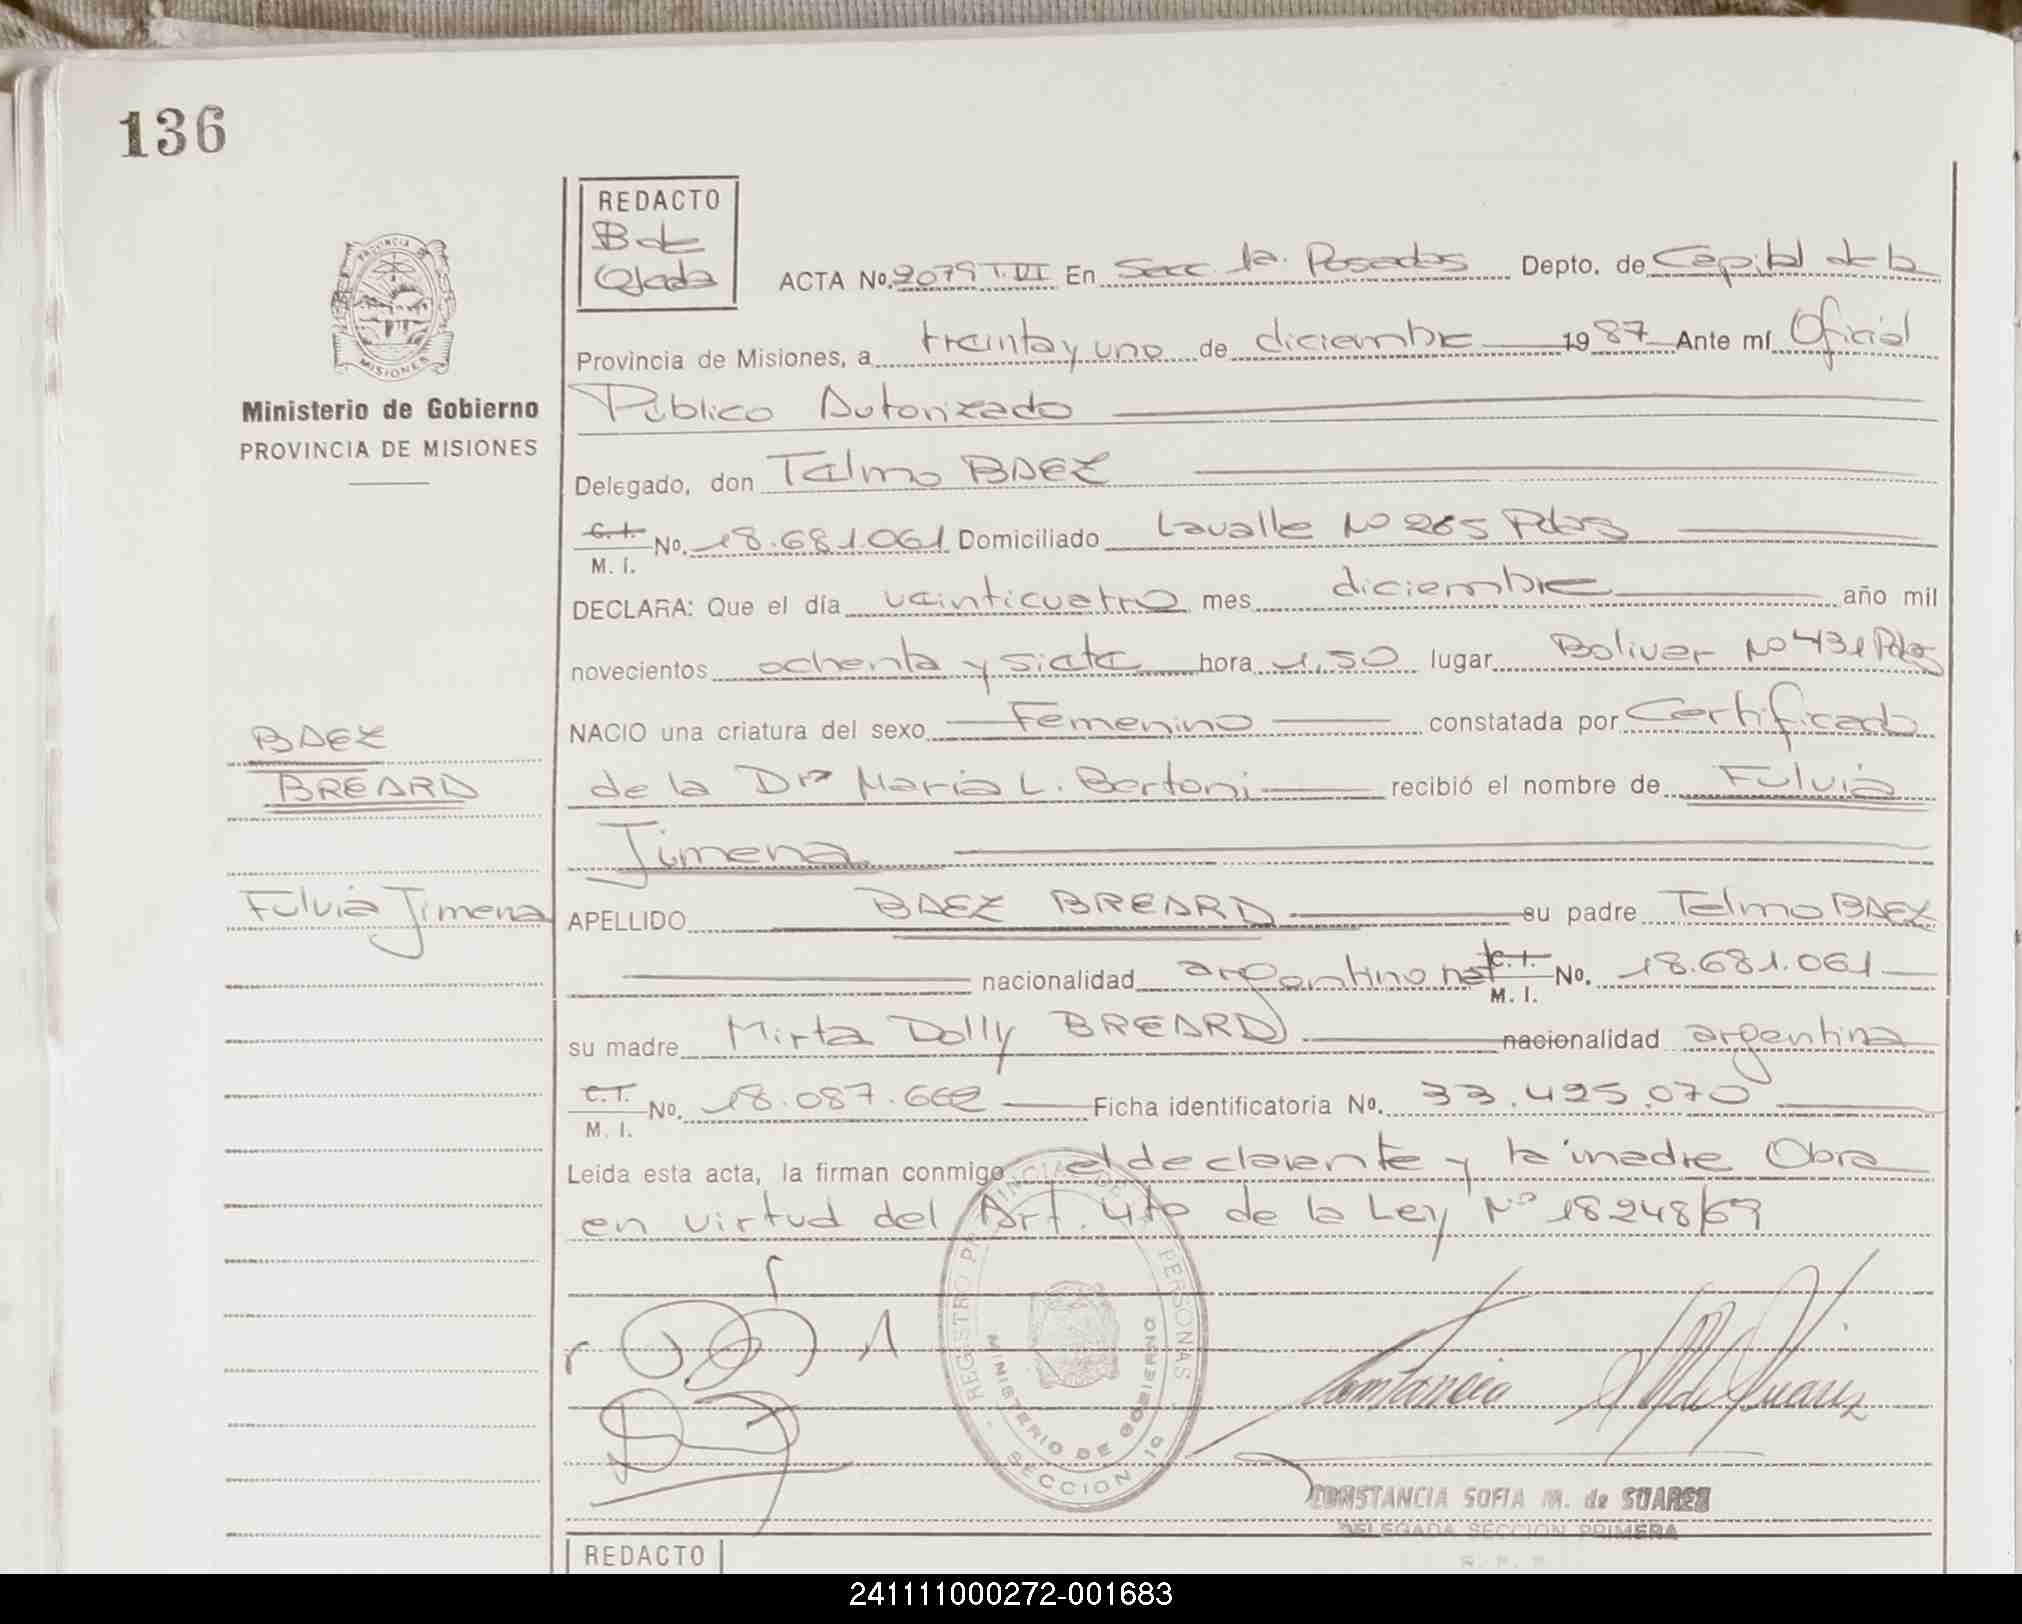 136
REDACTO
B de
Ojeda
PROVINCIA DE
MISIONES
Ministerio de Gobierno
PROVINCIA DE MISIONES
ACTA No. 2079 T. VI En Secc. 1a. Posadas Depto. de Capital de la
Provincia de Misiones, a treinta y uno de diciembre 1987 Ante mí Oficial
Público Autorizado
Delegado, don Telmo BAEZ
C.I. M. I. No. 18.681.061 Domiciliado Lavalle No 265 Pdas
DECLARA: Que el día veinticuatro mes diciembre año mil
novecientos ochenta y siete hora 1,50 lugar Bolivar No 431 Pdas
NACIO una criatura del sexo Femenino constatada por Certificado
de la Dra María L. Bertoni recibió el nombre de Fulvia
Jimena
APELLIDO BAEZ BREARD su padre Telmo BAEZ
nacionalidad argentino nat C. I. M. I. No. 18.681.061
su madre Mirta Dolly BREARD nacionalidad argentina
C.I. M. I. No. 18.087.662 Ficha identificatoria No. 33.425.070
Leída esta acta, la firman conmigo el declarante y la madre Obra
en virtud del Art. 4to de la Ley No 18248/69
BAEZ
BREARD
Fulvia Jimena
PERSONAS
MINISTERIO DE GOBIERNO
SECCION 1a
Constancia M de Suarez
CONSTANCIA SOFIA M. de SUAREZ
DELEGADA SECCION PRIMERA
R. P. P.
REDACTO
241111000272-001683